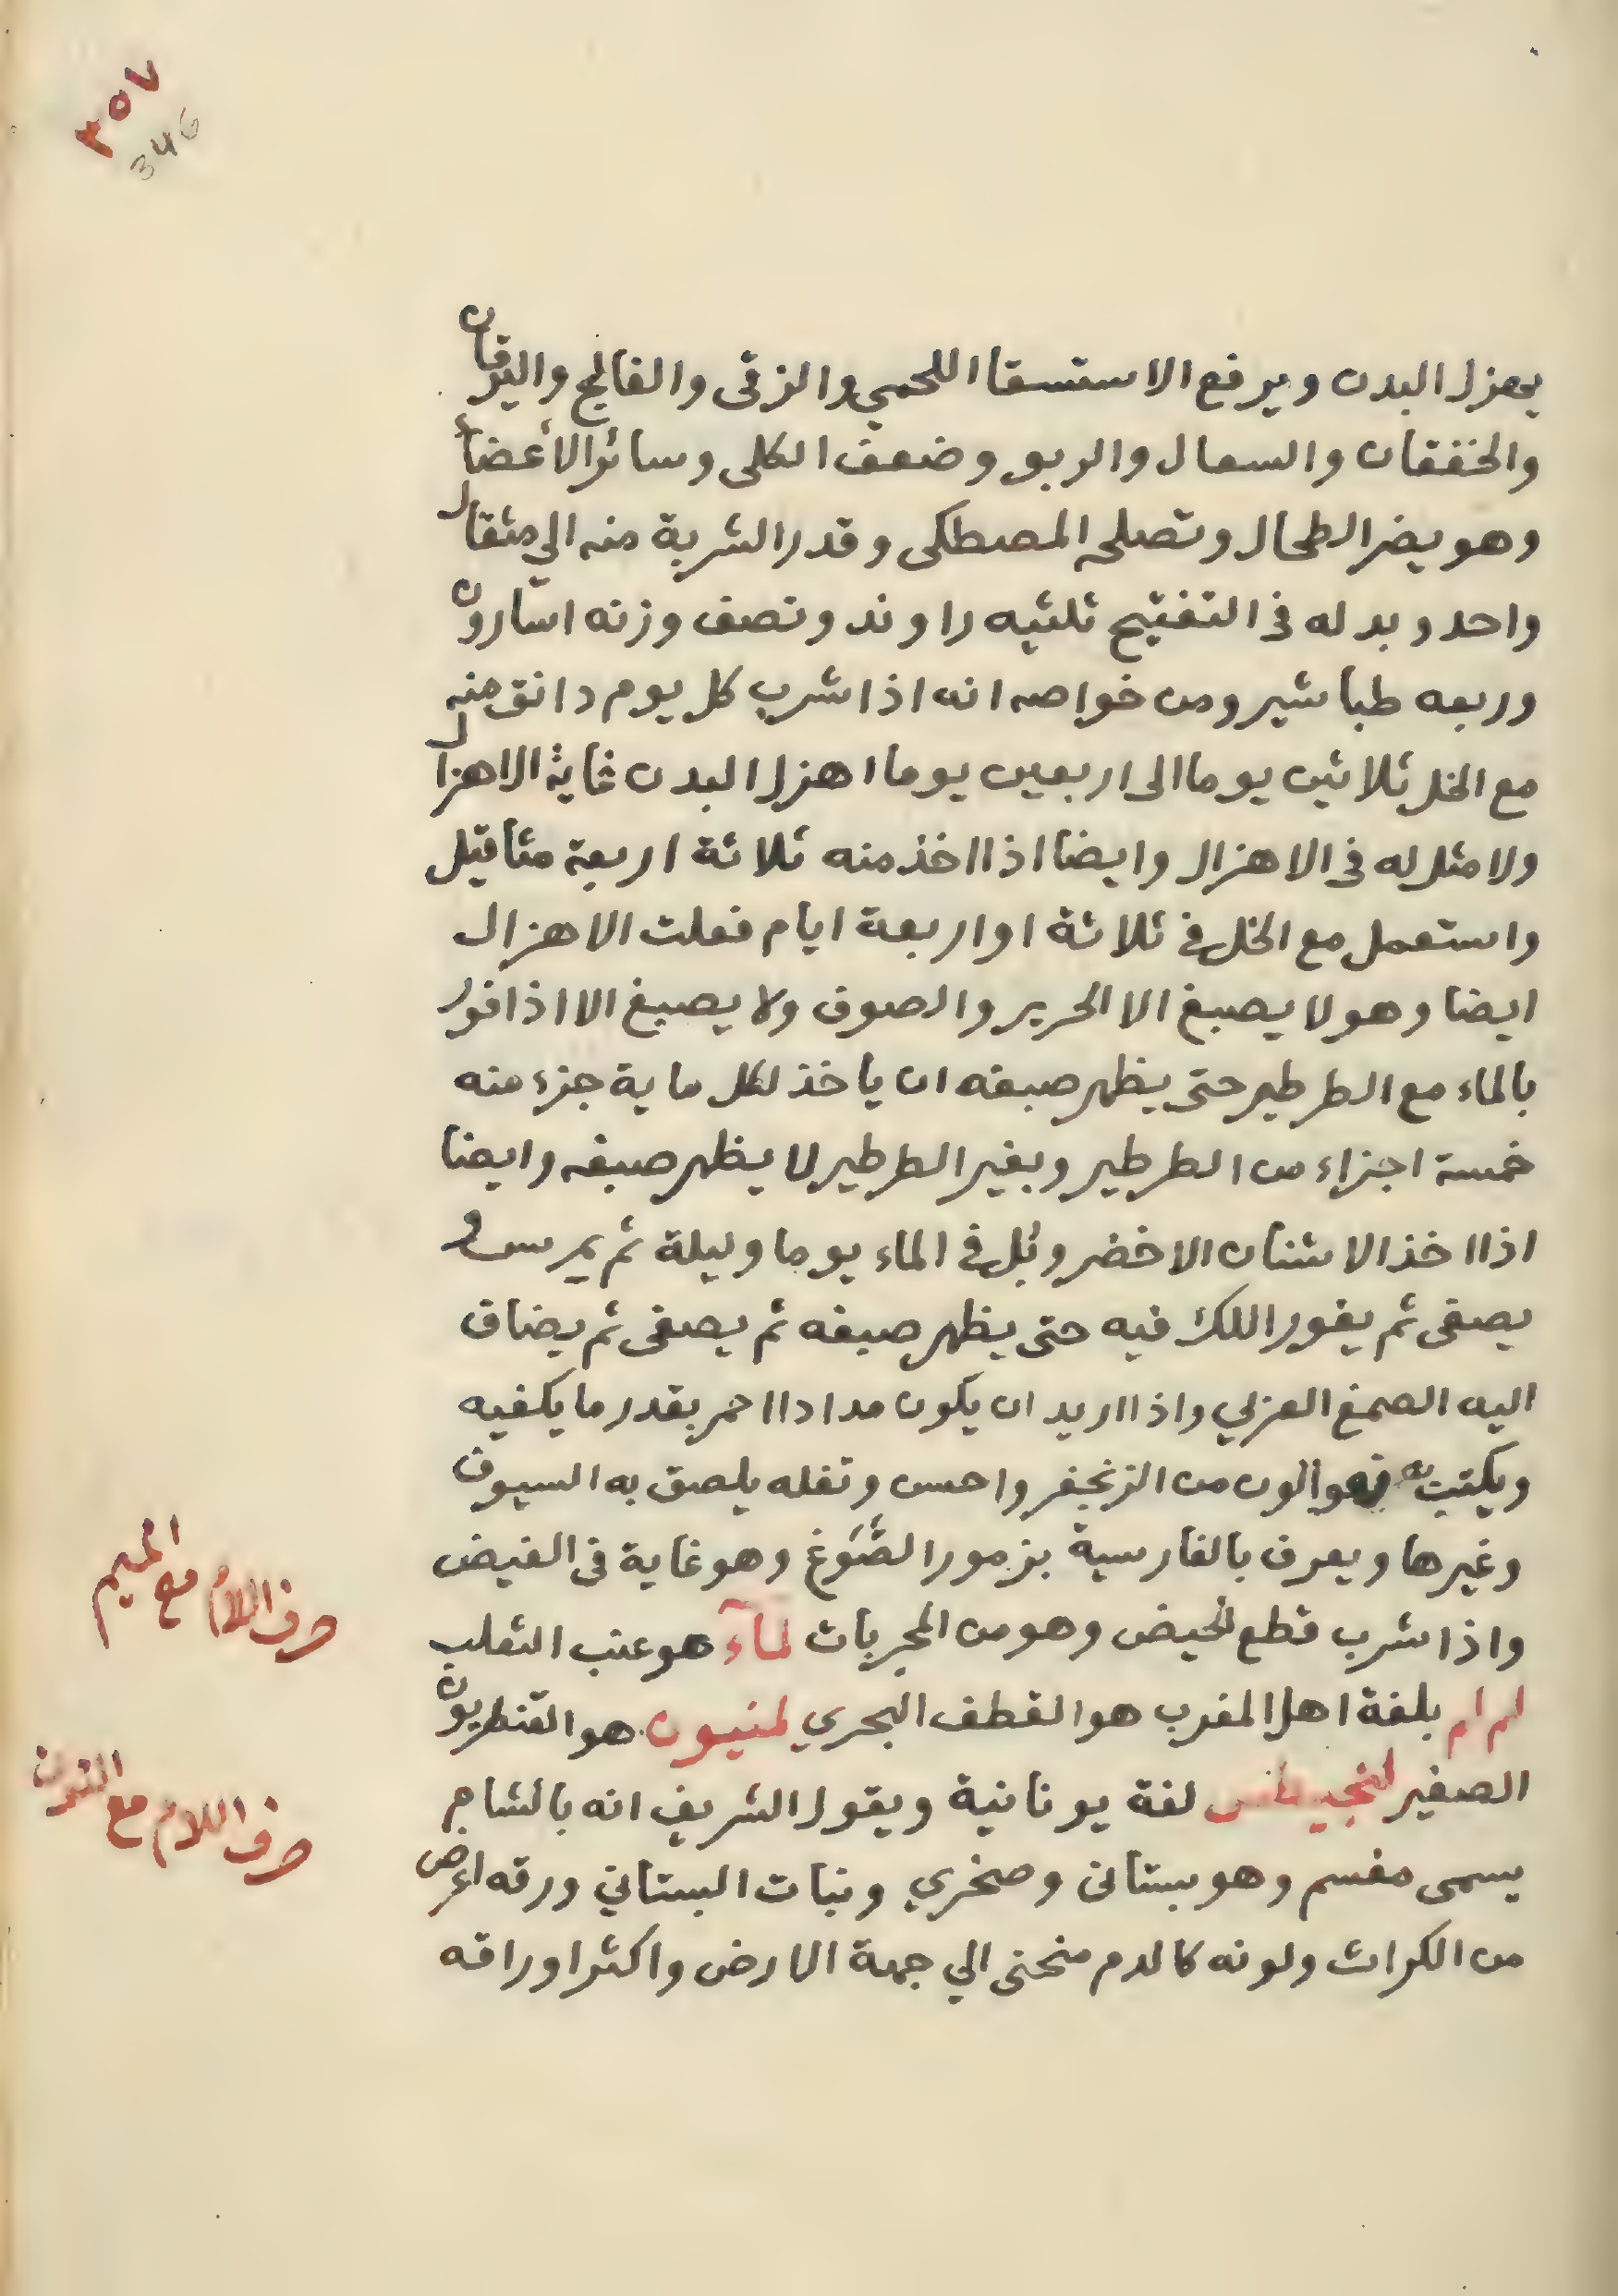 ٣٥٧
346
يهزل البدن ويرفع الاستسقا اللحمي والزقى والفالج واليرقان
والخفقان والسعال والربو وضعف الكلى وسائر الأعضاء
وهو يضر الطحال وتصلحه المصطكى وقدر الشربة منه الي مثقال
واحد وبدله فى التفتيح ثلثيه راوند ونصف وزنه اسارون
وربعه طباشير ومن خواصه انه اذا شرب كل يوم دانق منه
مع الخل ثلاثين يوما الى اربعين يوما اهزل البدن غاية الاهزال
ولا مثل له فى الاهزال وايضا اذا اخذ منه ثلاثة اربعة مثاقيل
واستعمل مع الخل في ثلاثة او اربعة ايام فعلت الاهزال
ايضا وهو لا يصبغ الا الحرير والصوف ولا يصبغ الا اذا فور
بالماء مع الطرطير حتى يظهر صبغه ان ياخذ لكل ماية جزء منه
خمسة اجزاء من الطرطير وبغير الطرطير لا يظهر صبغه وايضا
اذا اخذ الاشنان الاخضر وبُل في الماء يوما وليلة ثم يمرس و
يصفى ثم يغور اللك فيه حتى يظهر صبغه ثم يصفى ثم يضاف
اليه الصمغ العربي واذا اريد ان يكون مدادا احمر بقدر ما يكفيه
ويكتب به فهو الون من الزنجفر واحسن وتفله يلصق به السيوف
وغيرها ويعرف بالفارسية بزمور الصَّوَغ وهو غاية فى الفيض
واذا شرب قطع الحيض وهو من المجربات لمآء هو عنب الثعلب
لمرام بلغة اهل المغرب هو القطف البحري لمنيون هو القنطريون
الصغير لنجيطس لغة يونانية ويقول الشريف انه بالشام
يسمى مفسم وهو بستانى وصخري ونبات البستاني ورقه اعرض
من الكراث ولونه كالدم منحنى الي جهة الارض واكثر اوراقه
حرف اللام مع الميم
حرف اللام مع النون